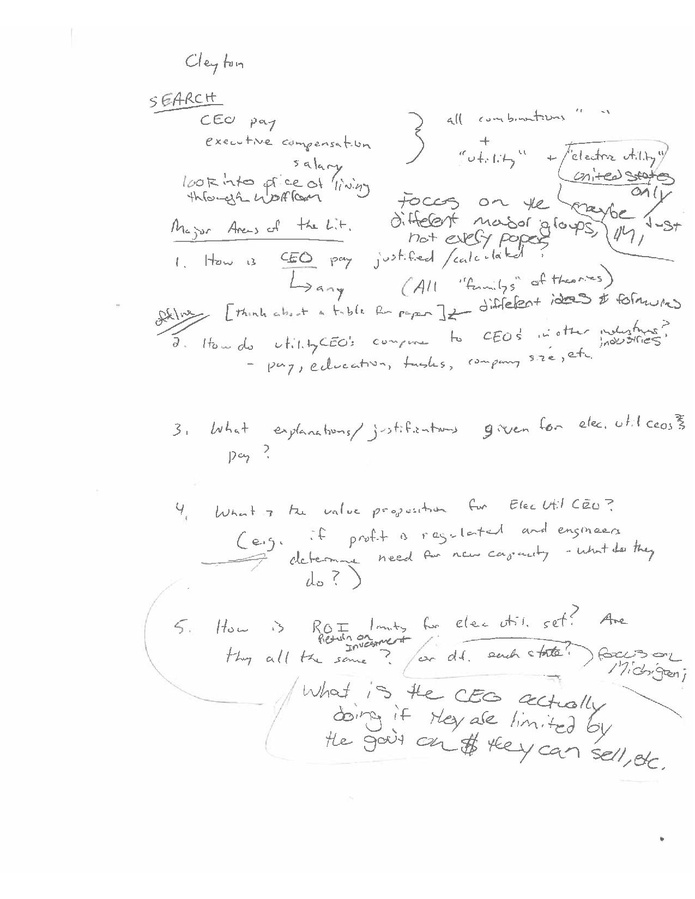 Cleyton
SEARCH
CEO pay
executive compensation
salary
all combinations " "
+
"utility" + "electric utility"
united states
only
look into price of living
through Wolfram
Focus on the maybe just
different major groups,
not every paper
Major Areas of the Lit.
1. How is CEO pay justified/calculated?
any
(All "familys" of theories)
offline [think about a table for paper] different ideas & formulas
2. How do utility CEO's compare to CEO's in other industries?
industries
- pay, education, tasks, company size, etc.
3. What explanations/justifications given for elec. util ceos
pay?
4. What is the value proposition for Elec Util CEO?
(e.g. if profit is regulated and engineers
determine need for new capacity - what do they
do?)
5. How is ROI limits for elec util. set? Are
Return on
Investment
they all the same? or dif. each state? focus on
Michigan!
What is the CEO actually
doing if they are limited by
the gov't on $ they can sell, etc.